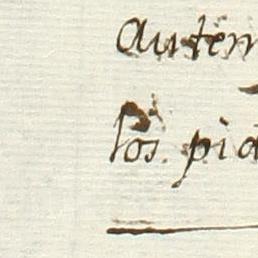 autem
los pid